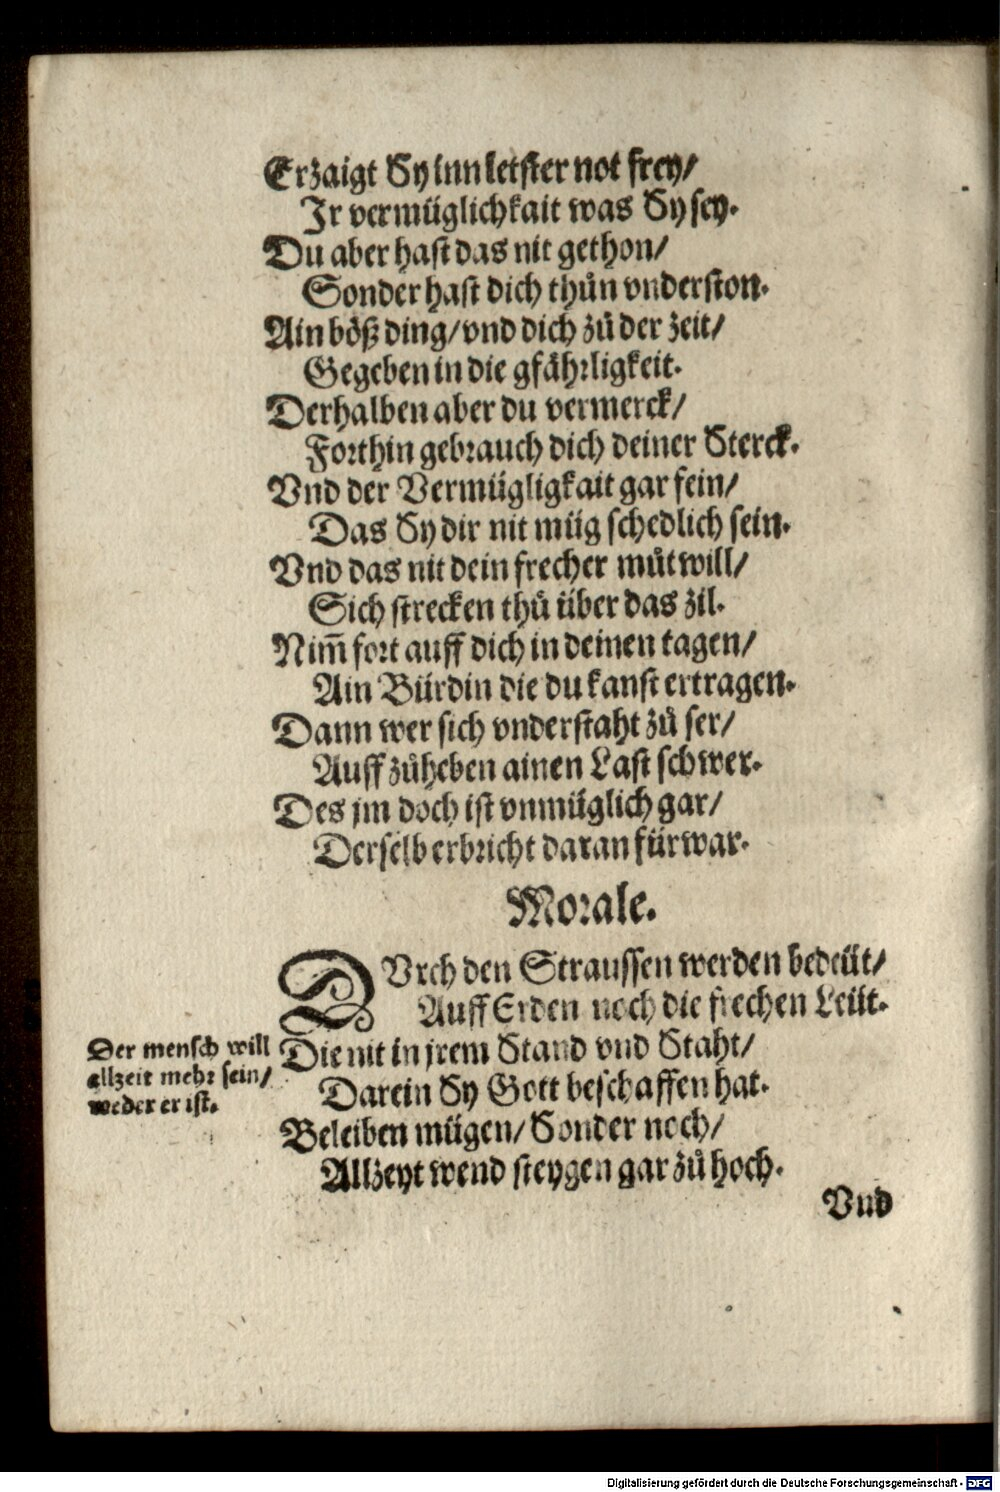 Erzaigt Sy inn letster not frey/
Ir vermüglichkait was Sy sey.
Du aber hast das nit gethon/
Sonder hast dich thůn vnderston.
Ain böß ding/ vnd dich zů der zeit/
Gegeben in die gfährligkeit.
Derhalben aber du vermerck/
Forthin gebrauch dich deiner Sterck.
Vnd der Vermügligkait gar fein/
Das Sy dir nit müg schedlich sein.
Vnd das nit dein frecher můtwill/
Sich strecken thů über das zil.
Nim̃ fort auff dich in deinen tagen/
Ain Bürdin die du kanst ertragen.
Dann wer sich vnderstaht zů ser/
Auff zůheben ainen Last schwer.
Des jm doch ist vnmüglich gar/
Derselb erbricht daran fürwar.
Morale.
DVrch den Straussen werden bedeüt/
Auff Erden noch die frechen Leüt.
Die nit in jrem Stand vnd Staht/
Darein Sy Gott beschaffen hat.
Beleiben mügen/ Sonder noch/
Allzeyt wend steygen gar zů hoch.
Der mensch will
allzeit mehr sein/
weder er ist.
Vnd
Digitalisierung gefördert durch die Deutsche Forschungsgemeinschaft - DFG